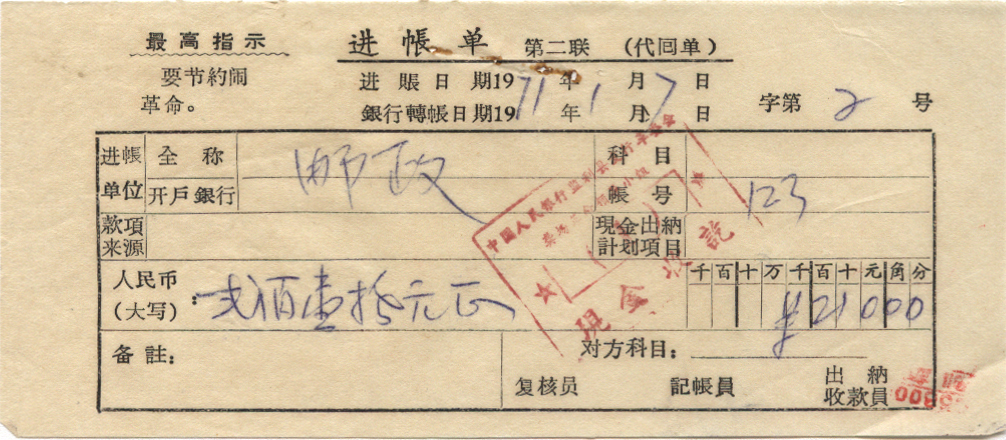 最高指示
要节約鬧
革命。
进帳单 第二联 (代回单)
进賬日期1971年1月7日
銀行轉帳日期19 年 月 日 字第2号
进帳单位 全称 邮政 科目
开戶銀行 帳号 123
款項来源 現金出納計划項目
人民币(大写): 弍佰壹拾元正
千百十万千百十元角分
¥21000
备註:
对方科目:
复核员 記帳員 出納收款員
中国人民銀行監利县
現金收訖